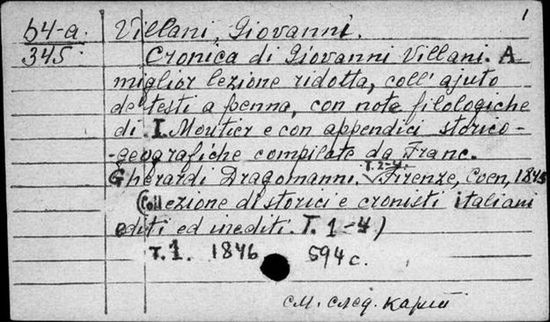 1
64-a. Villani, Giovanni.
345 Cronica di Giovanni Villani. A
miglior lezione ridotta, coll' ajuto
de' testi a penna, con note filologiche
di I. Moutier e con appendici storico-
-geografiche compilate da Franc.
Gherardi Dragomanni. T. 1-4. Firenze, Coen,
(Collezione di storici e cronisti italiani
editi ed inediti. T. 1-4)
T. 1. 1846 594 c.
см. след. карт